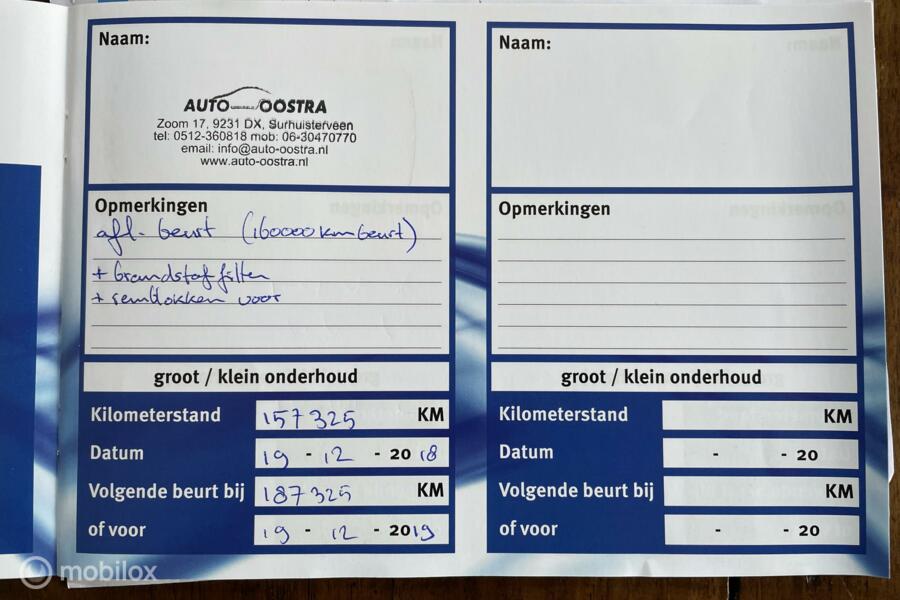 Naam:
AUTO OOSTRA
Zoom 17, 9231 DX, Surhuisterveen
tel: 0512-360818 mob: 06-30470770
email: info@auto-oostra.nl
www.auto-oostra.nl
Opmerkingen
afl. beurt (160000 km beurt)
+ brandstof filter
+ remblokken voor
groot / klein onderhoud
Kilometerstand 157325 KM
Datum 19 - 12 - 20 18
Volgende beurt bij 187325 KM
of voor 19 - 12 - 2019
Naam:
Opmerkingen
groot / klein onderhoud
Kilometerstand KM
Datum - - 20
Volgende beurt bij KM
of voor - - 20
mobilox